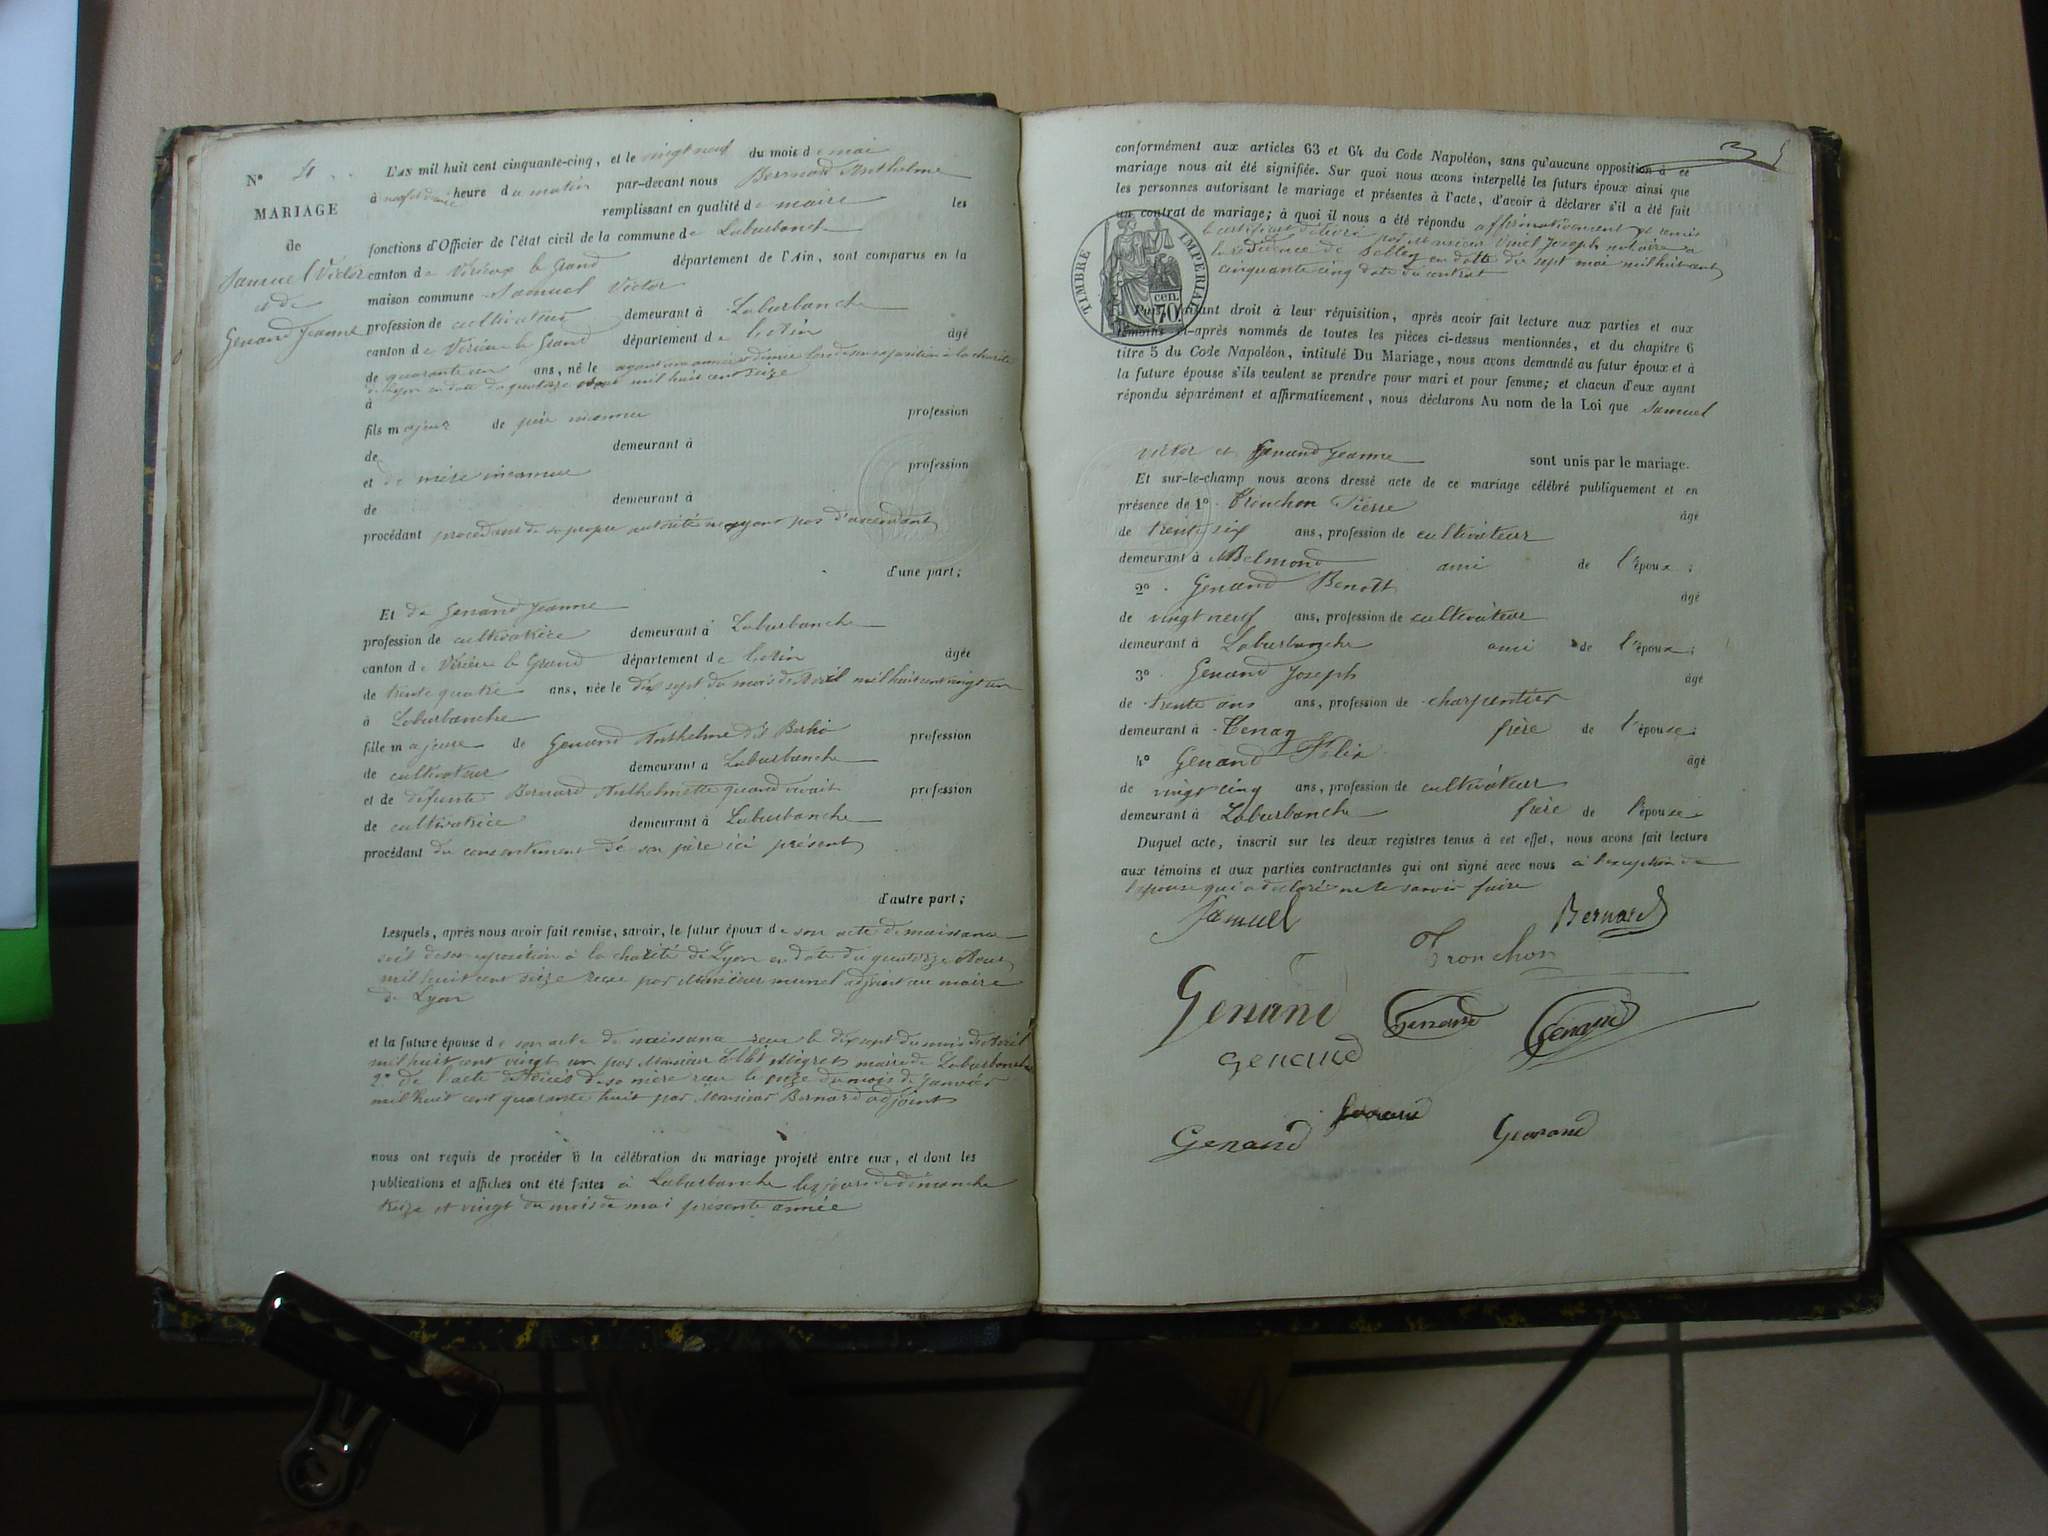 N° 4
MARIAGE
de
Samuel Victor
et de
Genand Jeanne
L'AN mil huit cent cinquante-cinq, et le vingt neuf du mois de mai
à neuf heure du matin par-devant nous Bernard Anthelme
remplissant en qualité de maire les
fonctions d'Officier de l'état civil de la commune de Laburbanche
canton de Virieux le Grand département de l'Ain, sont comparus en la
maison commune Samuel Victor
profession de cultivateur demeurant à Laburbanche
canton de Virieu le Grand département de l'Ain âgé
de quarante un ans, né le ayant une année et demie lors de son exposition à la charité
de Lyon en date du quatorze Aout mil huit cent seize
à
fils majeur de père inconnu profession
de demeurant à
et de mère inconnue profession
de demeurant à
procédant procédant de sa propre autorité n'ayant pas d'ascendant
d'une part;
Et de Genand Jeanne
profession de cultivatrice demeurant à Laburbanche
canton de Virieu le Grand département de l'Ain âgée
de trente quatre ans, née le dix sept du mois d'Avril mil huit cent vingt un
à Laburbanche
fille majeure de Genand Anthelme dit profession
de cultivateur demeurant à Laburbanche
et de défunte Bernard Anthelmette quand vivait profession
de cultivatrice demeurant à Laburbanche
procédant du consentement de son père ici présent
d'autre part;
Lesquels, après nous avoir fait remise, savoir, le futur époux de son acte de naissance
soit de son exposition à la charité de Lyon en date du quatorze Aout
mil huit cent seize reçu par Monsieur adjoint au maire
de Lyon
et la future épouse de son acte de naissance reçu le dix sept du mois d'Avril
mil huit cent vingt un par Monsieur maire de Laburbanche
2° de l'acte de décès de sa mère reçu le onze du mois de Janvier
mil huit cent quarante huit par Monsieur Bernard adjoint
nous ont requis de procéder à la célébration du mariage projeté entre eux, et dont les
publications et affiches ont été faites à Laburbanche les jours de dimanche
treize et vingt du mois de mai présente année
conformément aux articles 63 et 64 du Code Napoléon, sans qu'aucune opposition à ce
mariage nous ait été signifiée. Sur quoi nous avons interpellé les futurs époux ainsi que
les personnes autorisant le mariage et présentes à l'acte, d'avoir à déclarer s'il a été fait
un contrat de mariage; à quoi il nous a été répondu affirmativement et remis
le certificat délivré par Monsieur Vinel Joseph notaire à
la résidence de Belley en datte du sept mai mil huit cent
cinquante cinq date du contrat
TIMBRE IMPERIAL
70 cen.
Puis, faisant droit à leur réquisition, après avoir fait lecture aux parties et aux
témoins ci-après nommés de toutes les pièces ci-dessus mentionnées, et du chapitre 6
titre 5 du Code Napoléon, intitulé Du Mariage, nous avons demandé au futur époux et à
la future épouse s'ils veulent se prendre pour mari et pour femme; et chacun d'eux ayant
répondu séparément et affirmativement, nous déclarons Au nom de la Loi que Samuel
victor et Genand Jeanne sont unis par le mariage.
Et sur-le-champ nous avons dressé acte de ce mariage célébré publiquement et en
présence de 1° Tronchon Pierre âgé
de trente six ans, profession de cultivateur
demeurant à Belmond ami de l'époux;
2° Genand Benoît âgé
de vingt neuf ans, profession de cultivateur
demeurant à Laburbanche ami de l'époux;
3° Genand Joseph âgé
de trente ans ans, profession de charpentier
demeurant à Tenay frère de l'épouse;
4° Genand Félix âgé
de vingt cinq ans, profession de cultivateur
demeurant à Laburbanche frère de l'épouse
Duquel acte, inscrit sur les deux registres tenus à cet effet, nous avons fait lecture
aux témoins et aux parties contractantes qui ont signé avec nous à l'exception de
l'épouse qui a déclaré ne le savoir faire
Samuel
Bernard
Tronchon
Genand
Genand
Genand
Genand
Genand
Genand
Genand